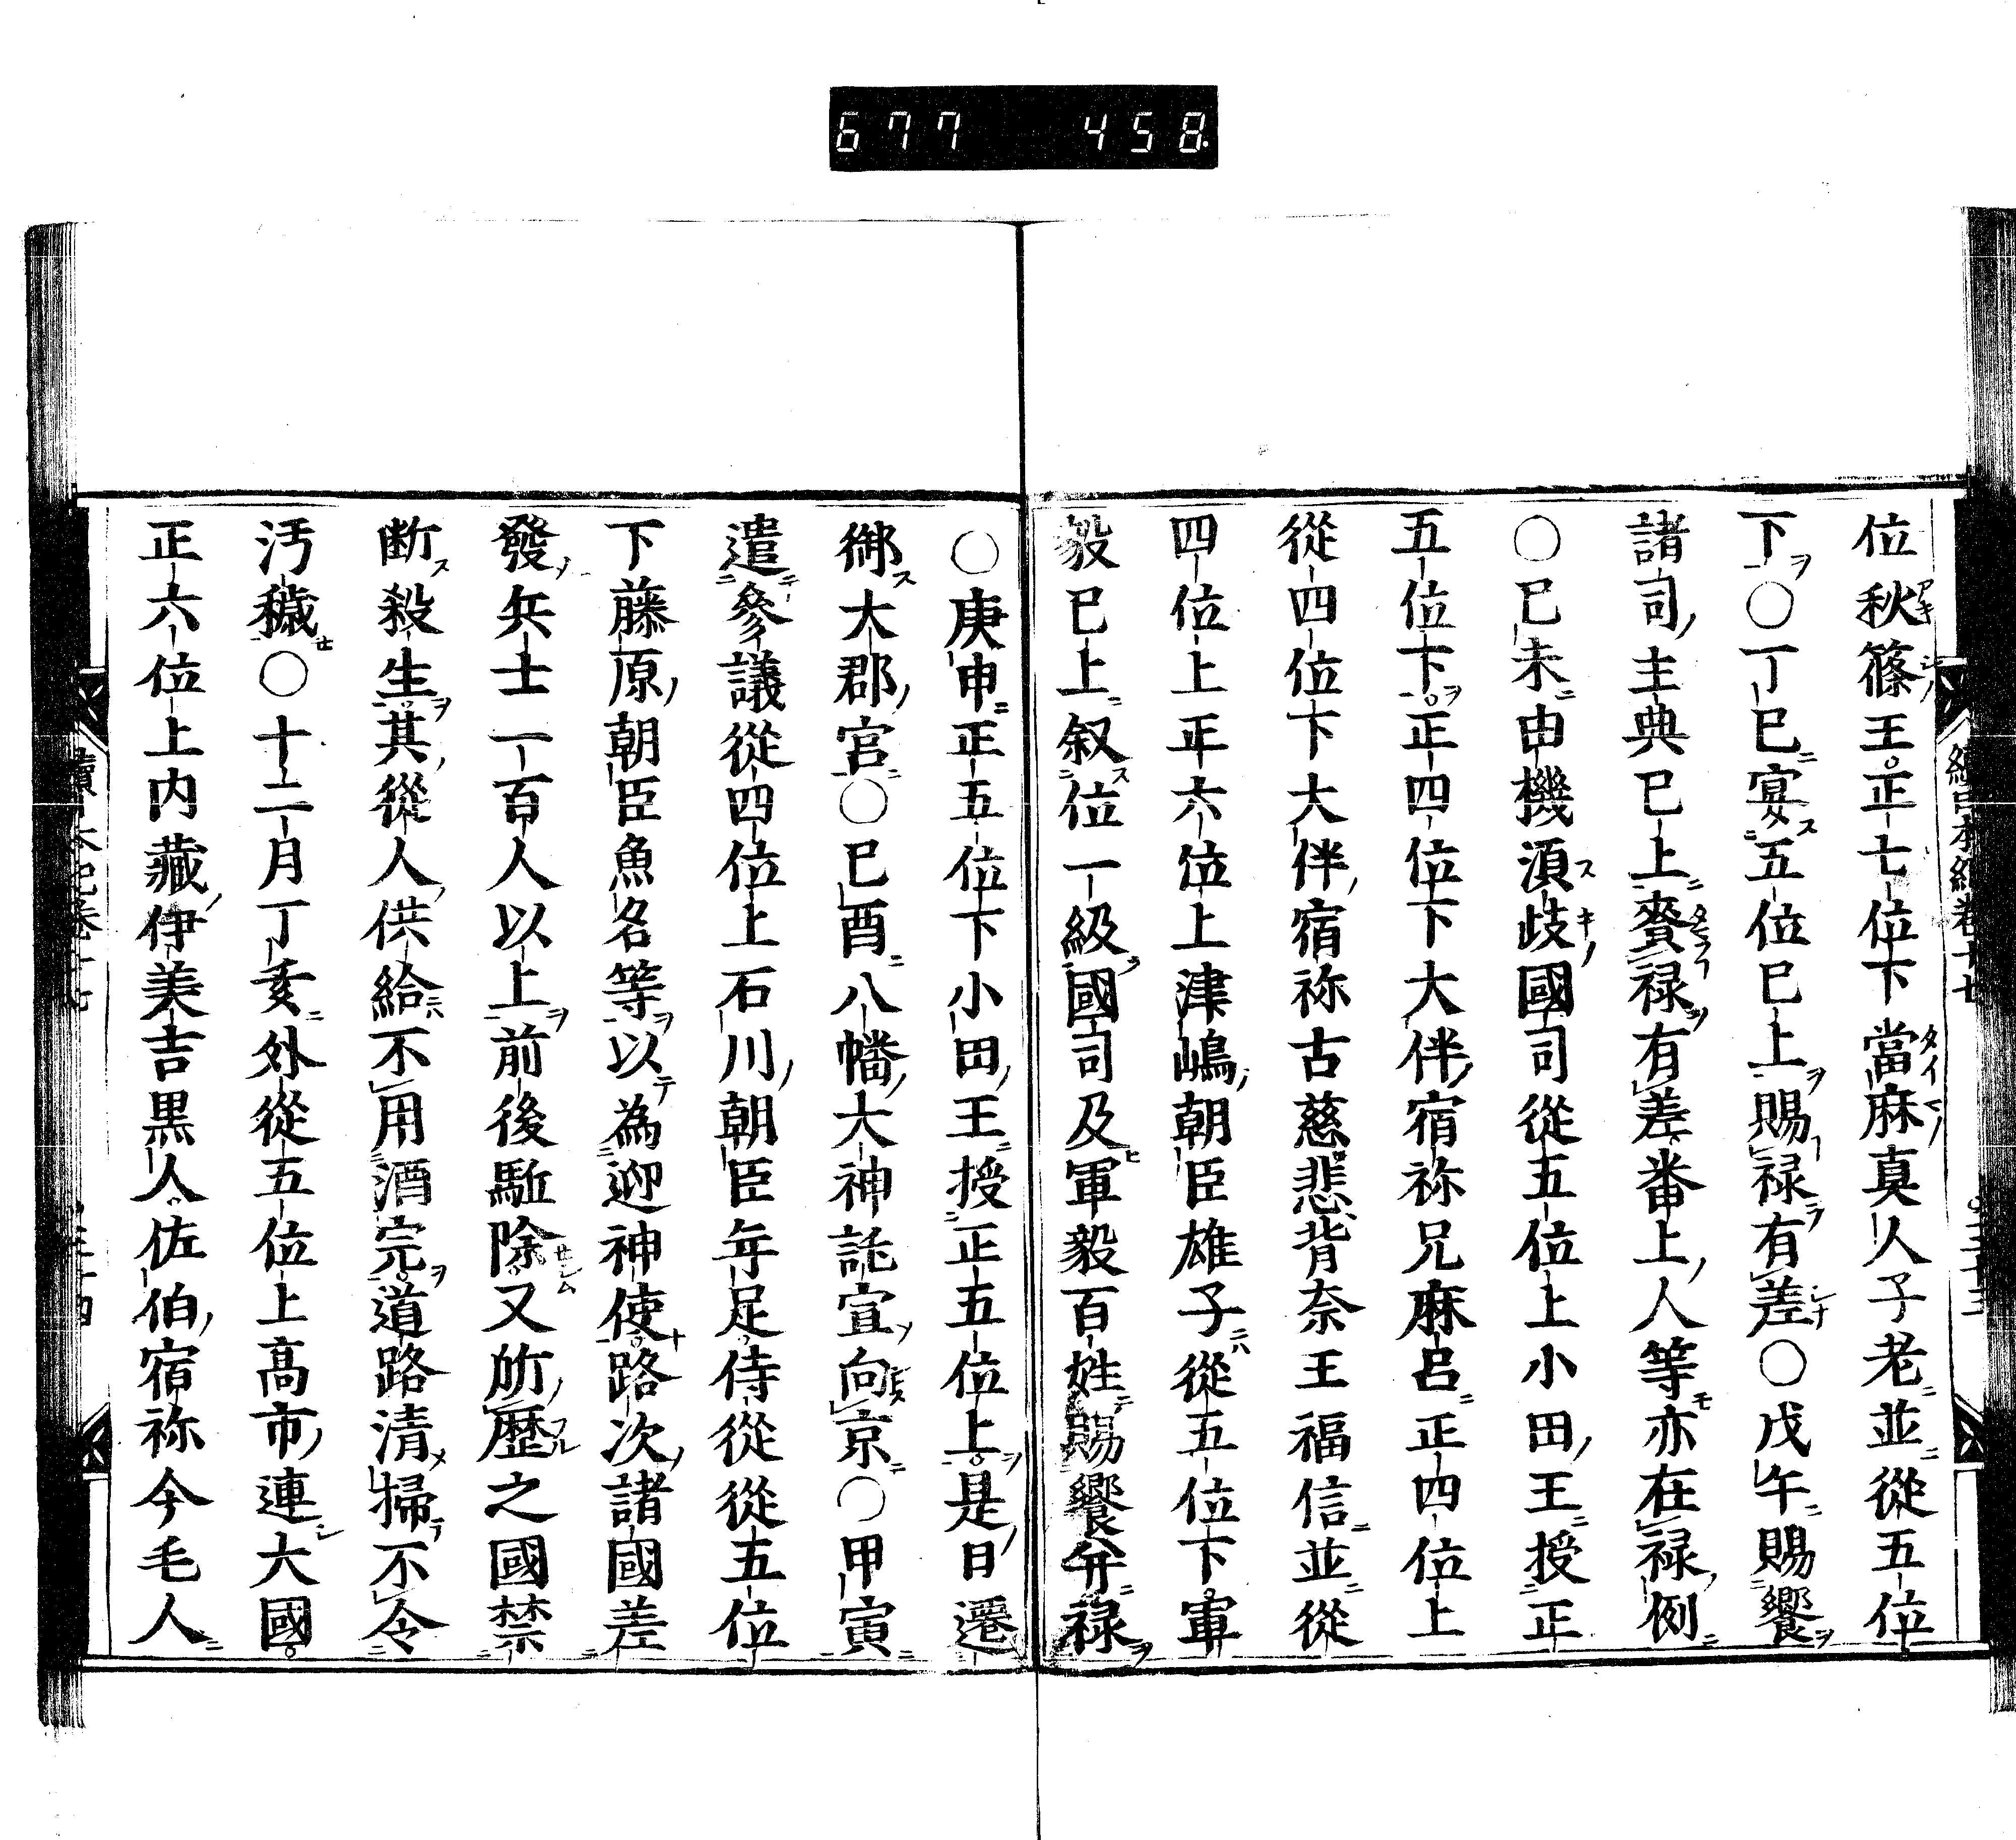 677 458
位秋篠王正七位下當麻真人子老並從五位
下〇丁巳宴五位巳上賜禄有差〇戊午賜饗
諸司主典巳上賚禄有差番上人等亦在禄例
〇巳未由機湏歧國司從五位上小田王授正
五位下正四位下大伴宿祢兄麻呂正四位上
從四位下大伴宿祢古慈悲背奈王福信並從
四位上正六位上津嶋朝臣雄子從五位下軍
毅巳上叙位一級國司及軍毅百姓賜饗并禄
〇庚申正五位下小田王授正五位上是日遷
御大郡宮〇巳酉八幡大神託宣向京〇甲寅
遣參議從四位上石川朝臣年足侍從從五位
下藤原朝臣魚名等以為迎神使路次諸國差
發兵士一百人以上前後駈除又所歴之國禁
断殺生其從人供給不用酒宍道路清掃不令
汚穢〇十二月丁亥外從五位上高市連大國
正六位上内藏伊美吉黒人佐伯宿祢今毛人